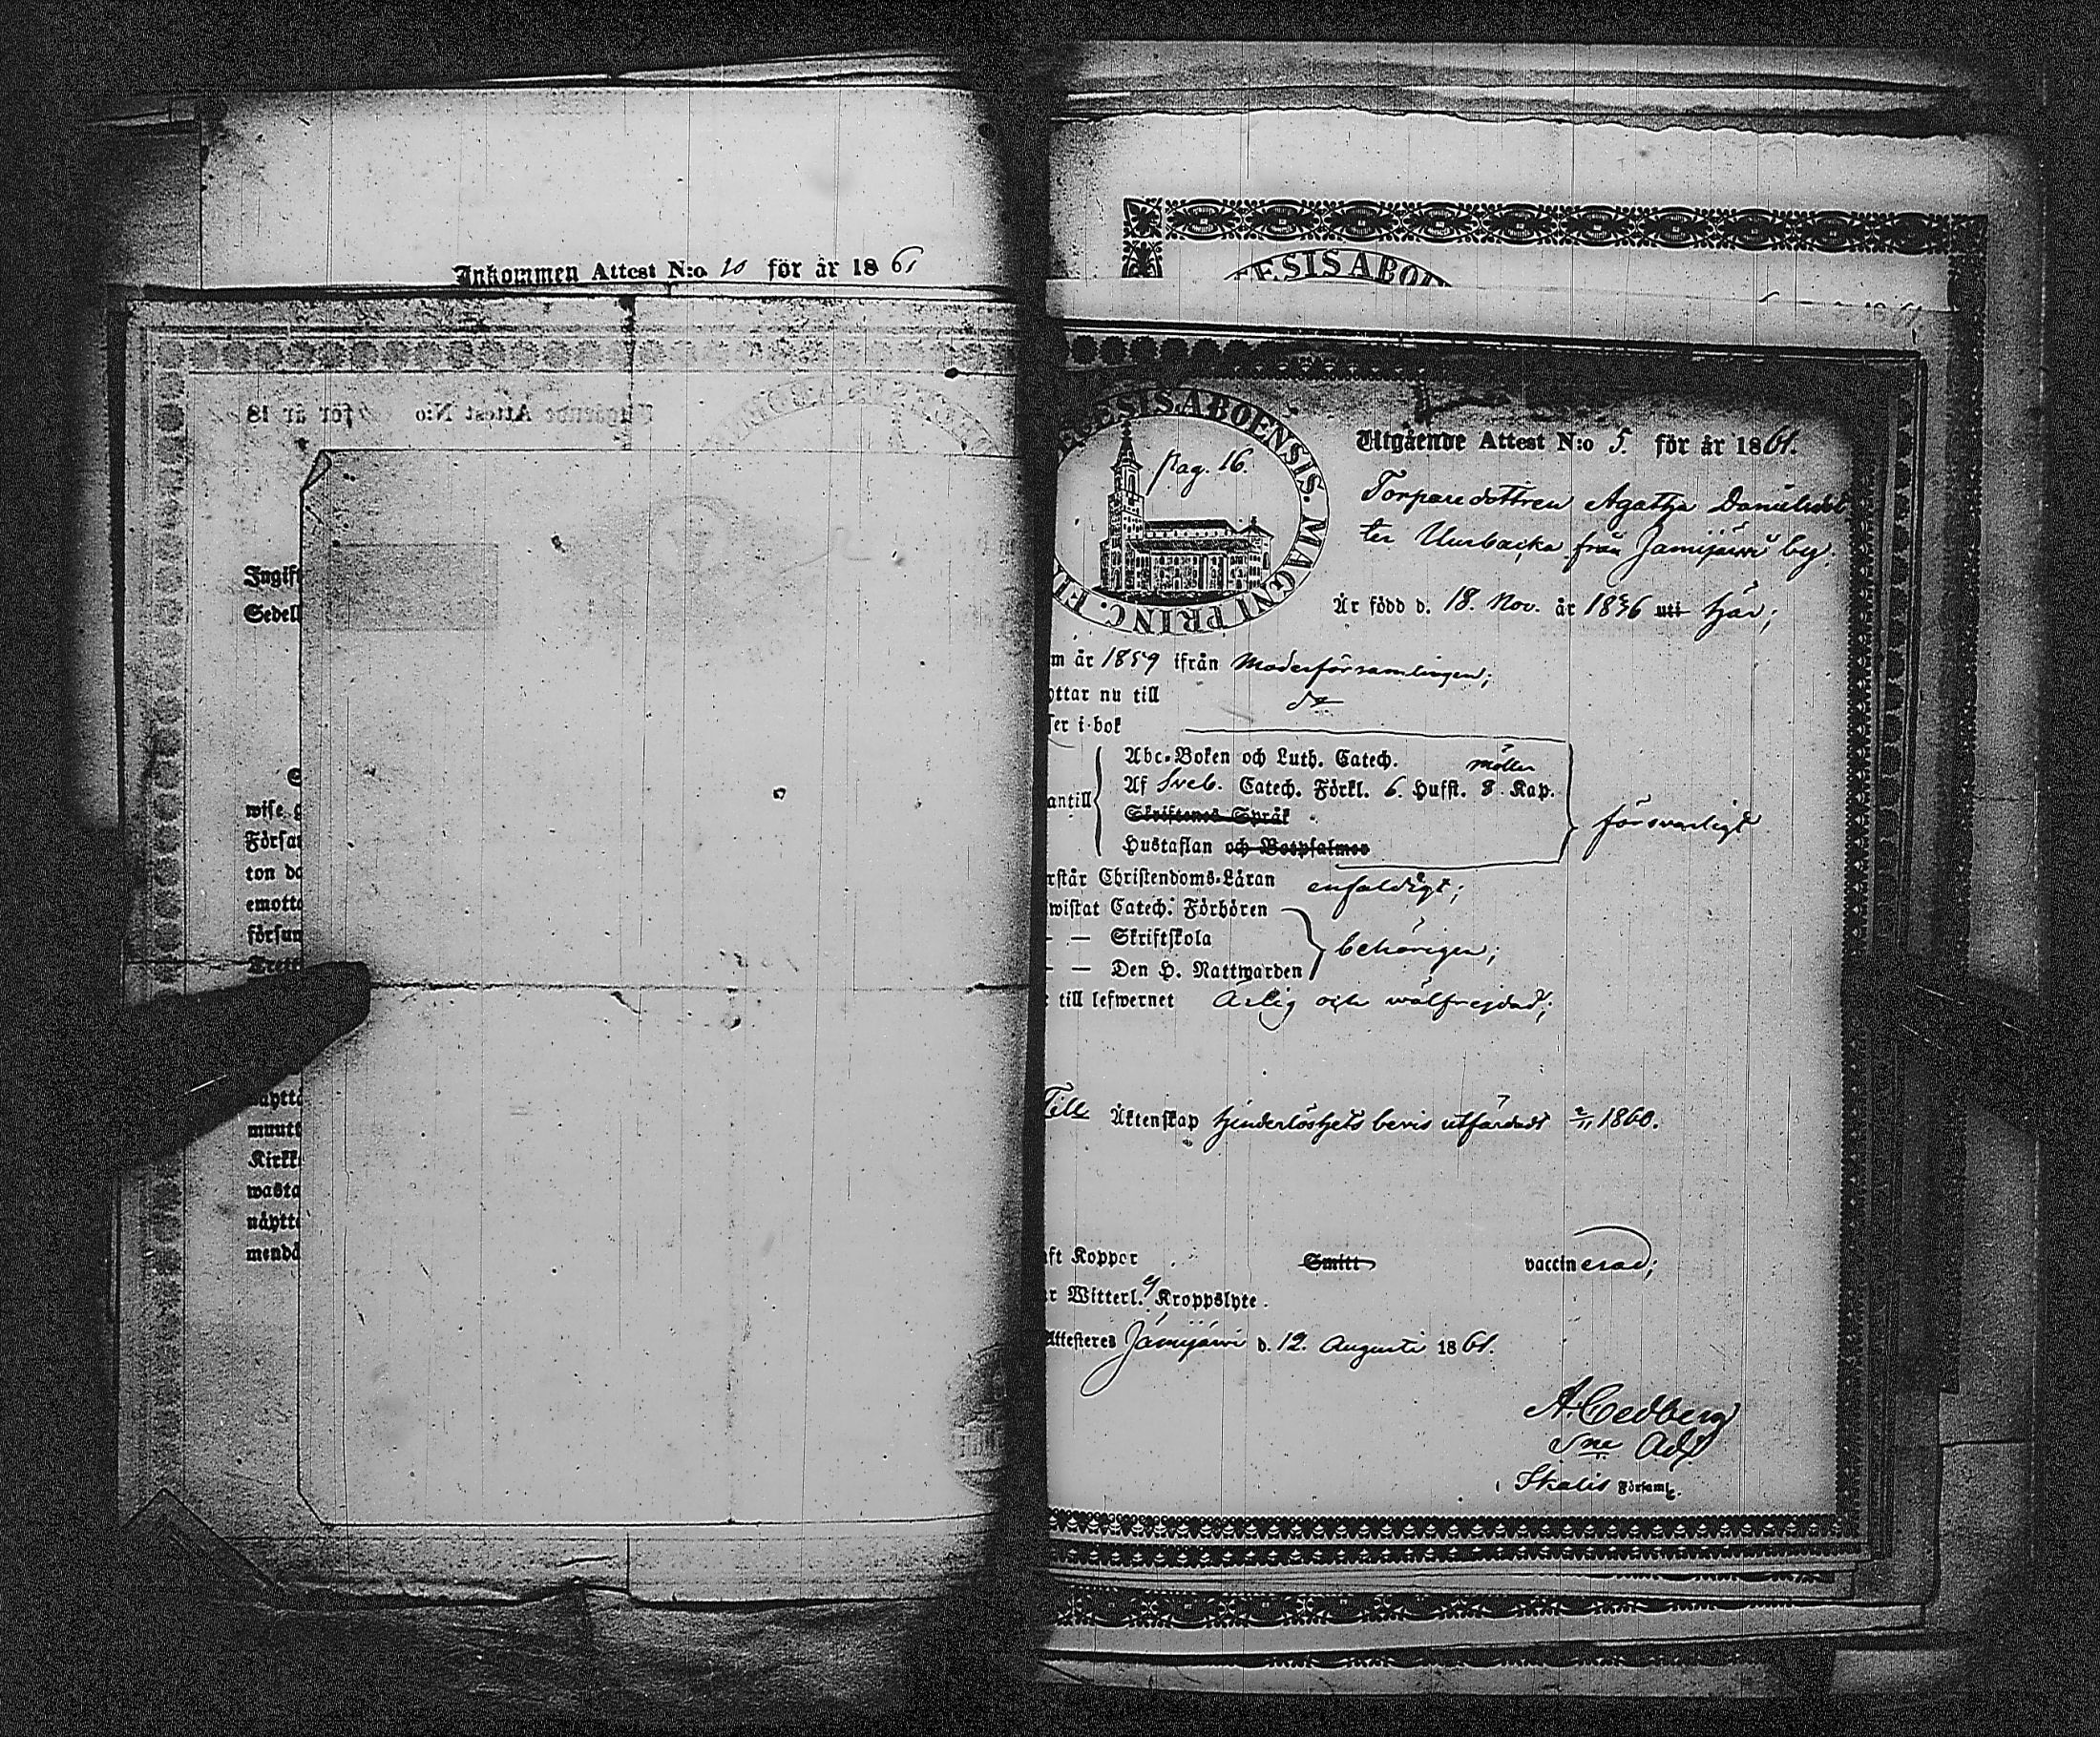 Inkommen Attest N:o 10 för år 1861
Utgående Attest N:o för år 18
Ingift
Sedell
wise g
Försar
ton da
emotta
försun
Trette
näytta
muutt
Kirkk
wasta
näyttä
mendä
ŒCESIS ABOENSIS. MAGNI PRINC. FI
pag. 16.
Utgående Attest N:o 5. för år 1861.
Torparedottren Agatha Danielsdot
ter Uurbacka från Jämijärvi by.
Är född d. 18. Nov. år 1836 uti här;
m år 1859 ifrån Moderförsamlingen;
yttar nu till do
ser i bok
antill
Abc-Boken och Luth. Catech.
Af Sveb. Catech. Förkl. 6. Hufst. 8. Kap.
Skriftenes Språk
Hustaflan och Botpsalmer
försvarligt
rstår Christendoms-Läran enfaldigt;
wistat Catech. Förhören
— — Skriftskola
— — Den H. Nattwarden
behörigen;
till lefwernet Ärlig och wälfrejdad;
Till Äktenskap hinderlöshets bevis utfärdadt 2/11 1860.
aft Koppor Smitt vaccinerad;
r Witterl. ej Kroppslyte.
Attesteras Jämijärvi d. 12. Augusti 1861.
A. Cedberg
Sne Adj
i Ikalis Församl.